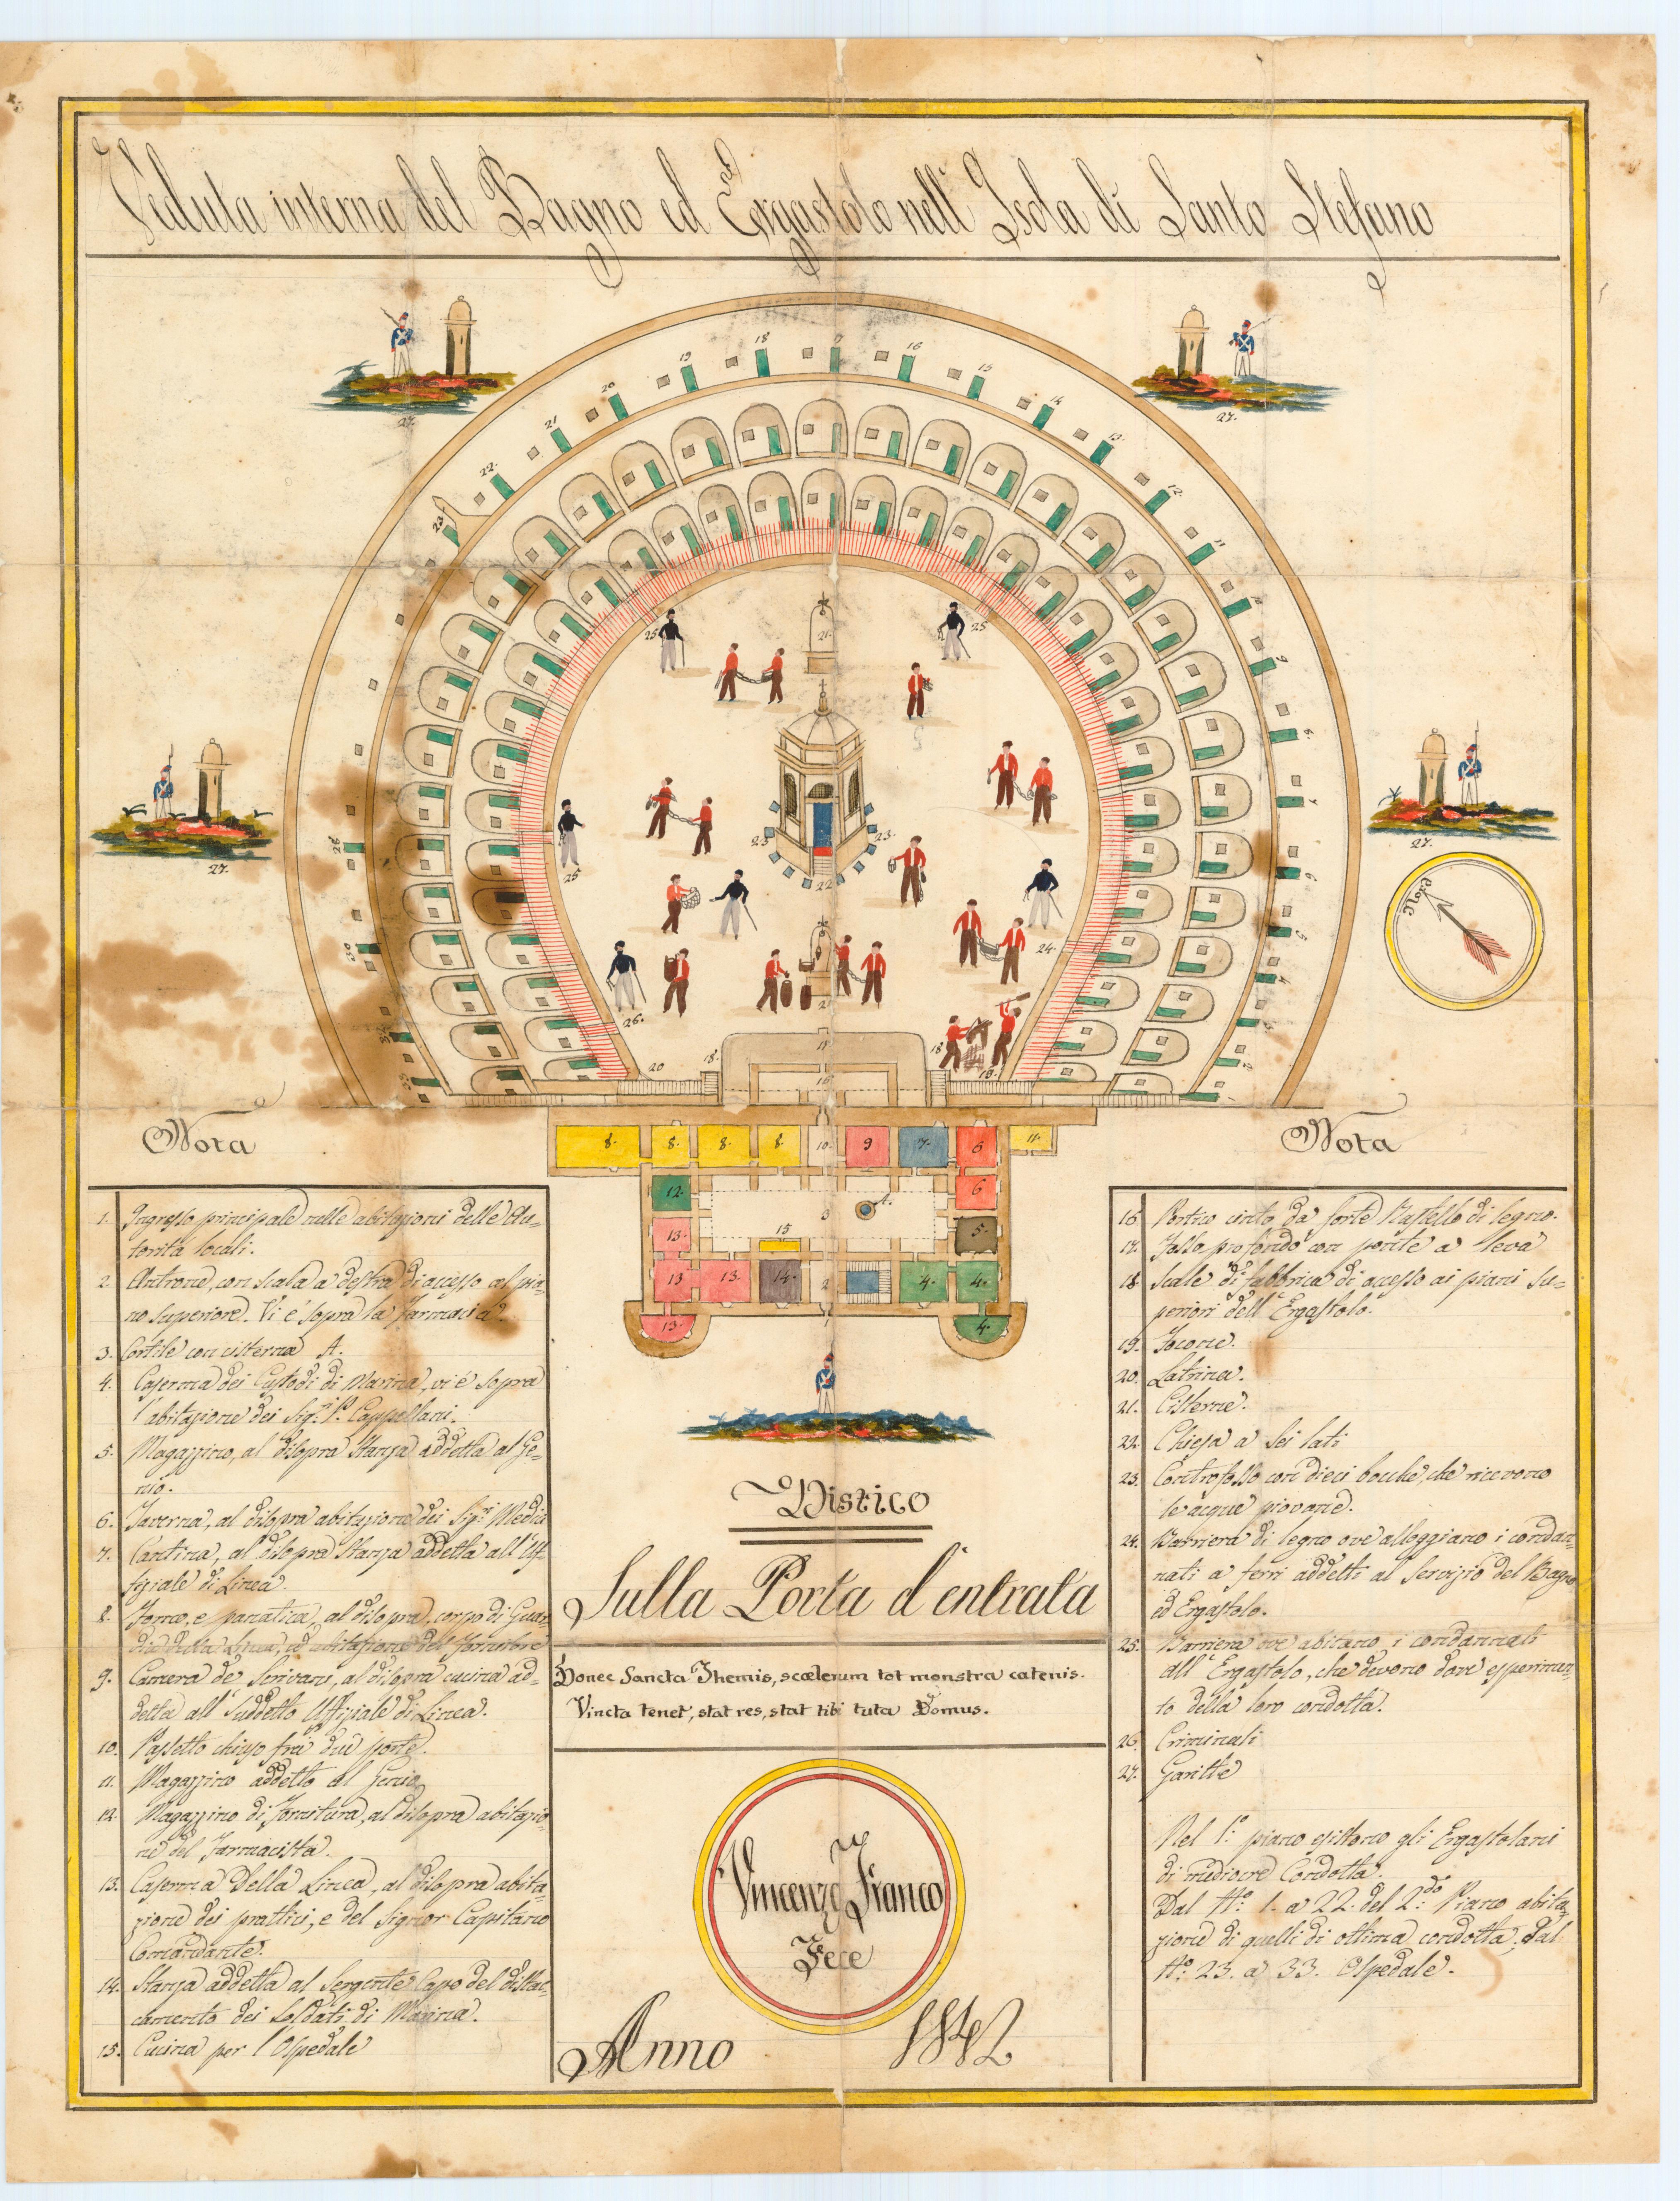 Veduta interna del Bagno ed Ergastolo nell' Isola di Santo Stefano
Nota
1. Ingresso principale nelle abitazioni delle Au=
torità locali.
2. Antrone, con scala a destra di accesso al pia=
no superiore. Vi è sopra la farmacia.
3. Cortile con cisterna A.
4. Caserma dei Custodi di Marina, vi è sopra
l'abitazione dei Sig.ri P. Cappellani.
5. Magazzino, al disopra Stanza addetta al Ge=
nio.
6. Taverna, al disopra abitazione dei Sig.ri Medici
7. Cantina, al disopra Stanza addetta all' Uf=
fiziale di Linea.
8. Forno, e panatica, al disopra corpo di Guar=
dia della Linea, ed abitazione del fornitore
9. Camera de' Scrivani, al disopra cucina ad=
detta all' Suddetto Uffiziale di Linea.
10. Passetto chiuso fra due porte.
11. Magazzino addetto al Genio
12. Magazzino di fornitura, al disopra abitazio=
ne del Farmacista.
13. Caserma della Linea, al disopra abita=
zione dei prattici, e del Signor Capitano
Comandante.
14. Stanza addetta al Sergente Capo del distac=
camento dei Soldati di Marina.
15. Cucina per l'Ospedale
Distico
Sulla Porta d'entrata
Donec Sancta Themis, scelerum tot monstra catenis.
Vincta tenet, stat res, stat tibi tuta Domus.
Vincenzo Franco
Fece
Anno 1842
Nota
16. Portico cinto da forte Rastello di legno.
17. Fosso profondo con ponte a leva
18. Scale di fabbrica di accesso ai piani Su=
periori dell' Ergastolo.
19. Focone.
20. Latrina.
21. Cisterne.
22. Chiesa a Sei lati
23. Controfosso con dieci bocche, che ricevono
le acque piovane.
24. Barriera di legno ove alloggiano i condan=
nati a ferri addetti al Servizio del Bagno
ed Ergastolo.
25. Barriera ove abitano i condannati
all' Ergastolo, che devono dare esperimen=
to della loro condotta.
26. Criminali
27. Garitte
Nel 1.° piano esistono gli Ergastolani
di mediocre Condotta.
Dal N.° 1. a 22. del 2.do Piano abita=
zione di quelli di ottima condotta, Dal
N.° 23. a 33. Ospedale.